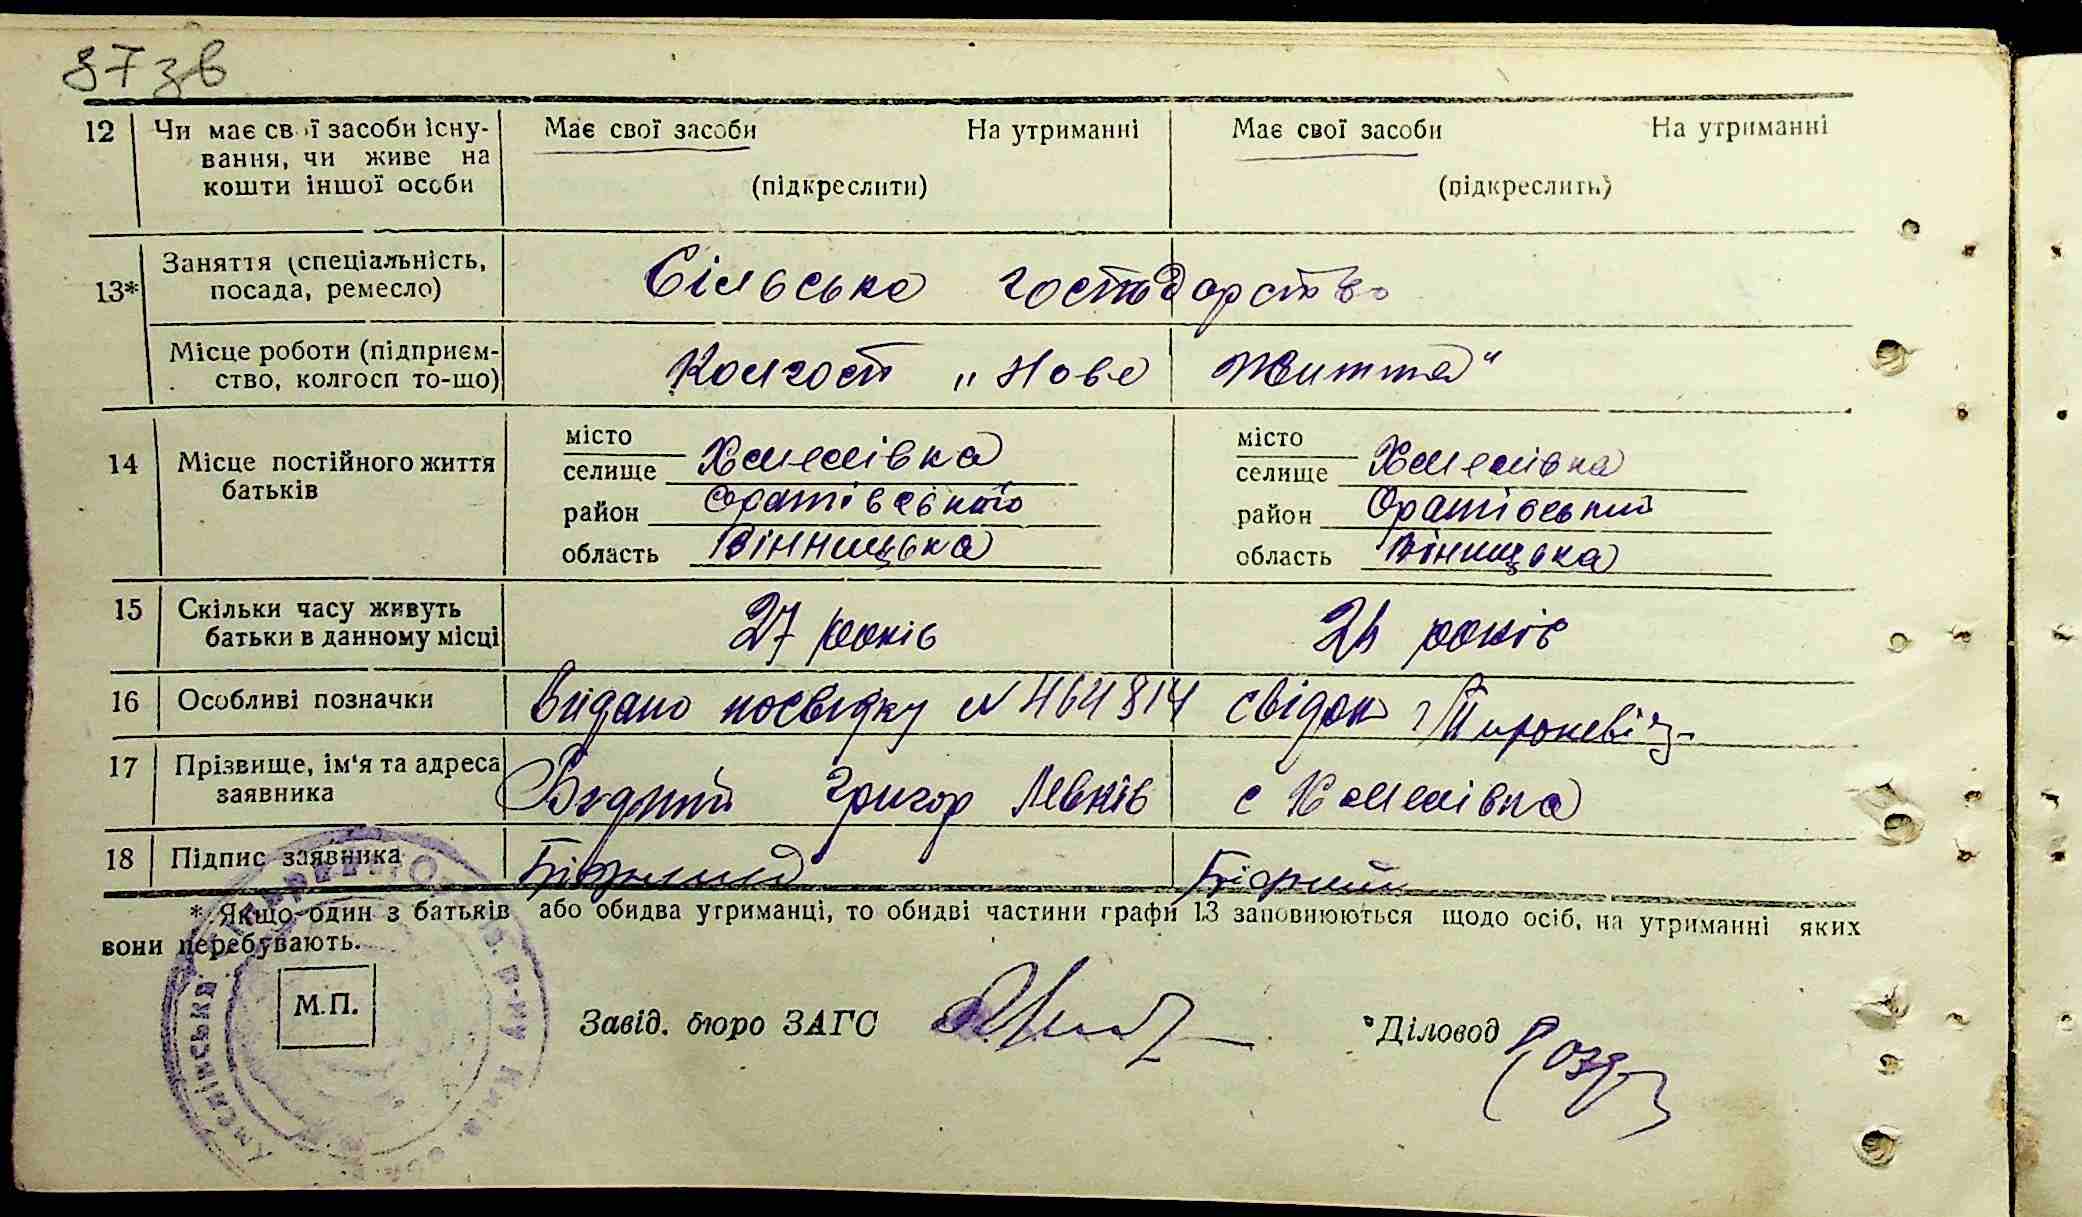 37зв
12 Чи має свої засоби існу- Має свої засоби На утриманні Має свої засоби На утриманні
вання, чи живе на
кошти іншої особи (підкреслити) (підкреслить)
13* Заняття (спеціальність, Сільське господарство
посада, ремесло)
Місце роботи (підприєм- Колгосп „Нове Життя"
ство, колгосп то-що)
14 Місце постійного життя місто місто
батьків селище Хмелівка селище Хмелівка
район Оратівського район Оратівський
область Вінницька область Віницька
15 Скільки часу живуть 27 років 24 років
батьки в данному місці
16 Особливі позначки Видано посвідку № 464814 свідок
17 Прізвище, ім'я та адреса Бидний Григор Левків с Хмелівка
заявника
18 Підпис заявника Бідний
* Якщо один з батьків або обидва утриманці, то обидві частини графи 13 заповнюються щодо осіб, на утриманні яких
вони перебувають.
М.П. Завід. бюро ЗАГС Діловод